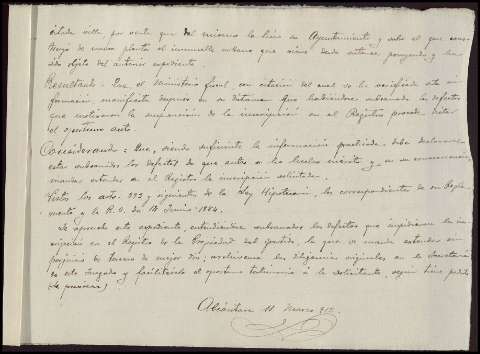 citada villa, por venta que del mismo le hizo su Ayuntamiento y sobre el que cons-
truyó de nueva planta el inmueble urbano que viene desde entonces poseyendo y ha
sido objeto del anterior expediente.
Resultando: Que el Ministerio fiscal con citación del cual se ha verificado esta in-
formación manifiesta después en su dictamen que habiéndose subsanado los defectos
que motivaron la suspensión de la inscripción en el Registro procede dictar
el oportuno auto.
Considerando: Que, siendo suficiente la información practicada debe declararse
estar subsanados los defectos de que antes se ha hecho mérito y en su consecuencia
mandar extender en el Registro la inscripción solicitada.
Vistos los arts. 393 y siguientes de la Ley Hipotecaria, los correspondientes de su Regla-
mento y la R. O. de 14 Junio 1884.
Se aprueba este expediente, entendiéndose subsanados los defectos que impidieron la ins-
cripción en el Registro de la Propiedad del partido, la que se manda extender sin
perjuicio de tercero de mejor dro; archívense las diligencias originales en la Secretaría
de este Juzgado y facilítesele el oportuno testimonio á la solicitante, según tiene pedido
Alcántara 11 Marzo 912.